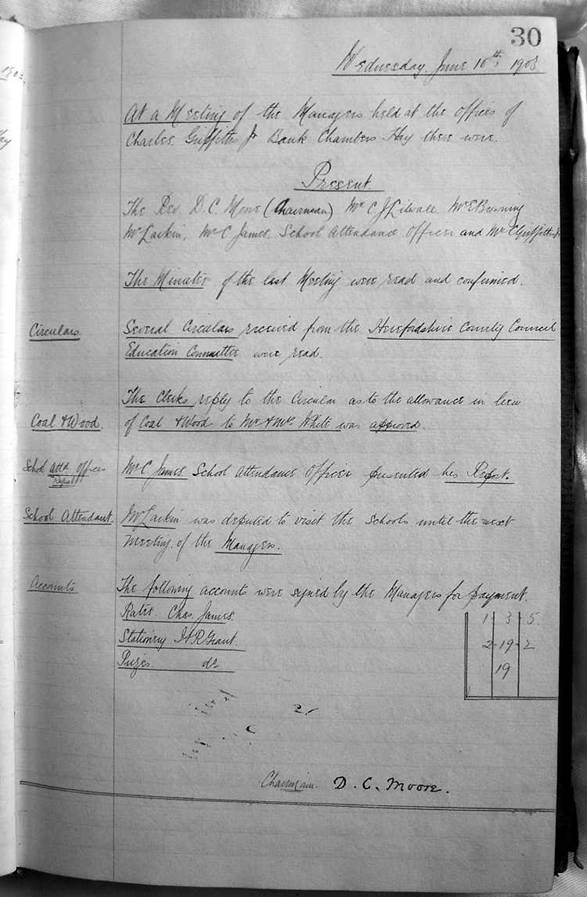 30
Wednesday, June 10th, 1903
At a Meeting of the Managers held at the offices of
Charles Griffiths Jr Bank Chambers Hay there were
Present
The Rev. D. C. Moore (Chairman) Mr C J Lilwall Mr E Browning
Mr Larkin, Mr C James, School Attendance Officer and Mr C Griffiths Jr
The Minutes of the last Meeting were read and confirmed.
Circulars. Several Circulars received from the Herefordshire County Council
Education Committee were read.
The Clerks reply to the Circular as to the allowance in lieu
Coal & Wood. of Coal & Wood to Mr & Mrs White was approved.
School attd. officer Mr C James School Attendance Officer presented his Report.
Report
School Attendant. Mr Larkin was deputed to visit the Schools until the next
Meeting of the Managers.
Accounts The following accounts were signed by the Managers for payment.
Rates. Chas James. 1 3 5
Stationery H. R. Grant. 2 19 2
Prizes do 19
Chairman. D. C. Moore.